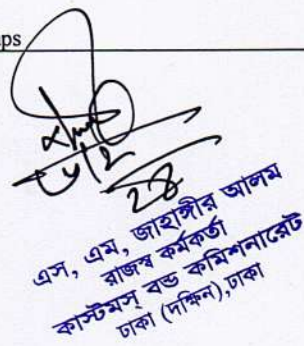 ps
এস, এম, জাহাঙ্গীর আলম
রাজস্ব কর্মকর্তা
কাস্টমস্ বন্ড কমিশনারেট
ঢাকা (দক্ষিন),ঢাকা